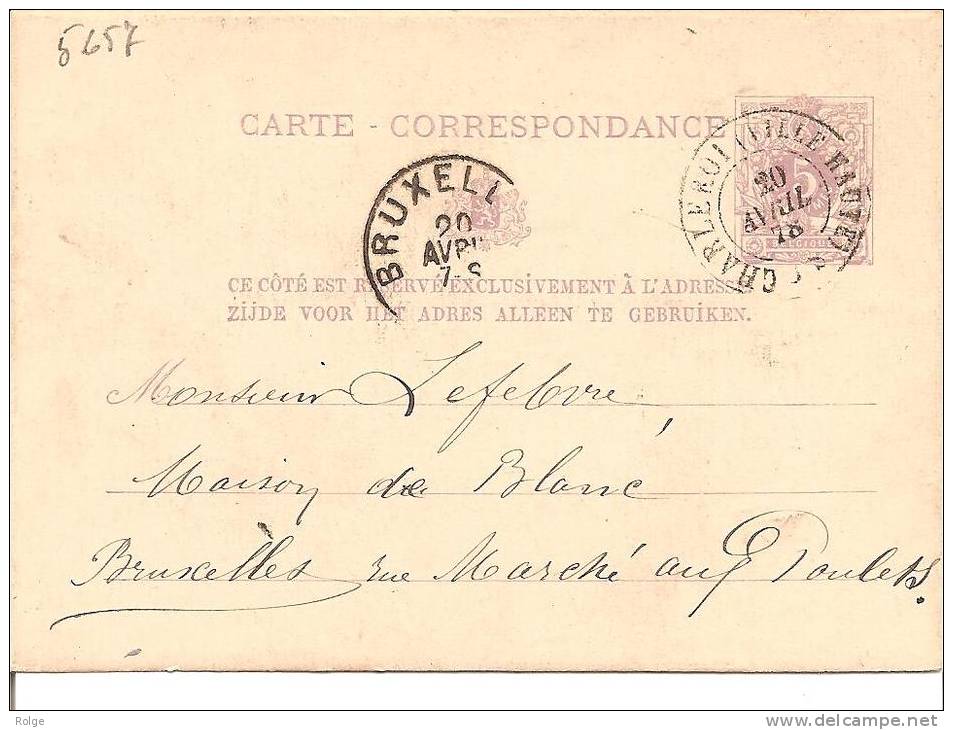 5657
CARTE - CORRESPONDANCE
CHARLEROI (VILLE HAUTE)
20
AVRIL
78
5
BELGIQUE
BRUXELL
20
AVRI
7-S
CE CÔTÉ EST RESERVÉ EXCLUSIVEMENT À L'ADRESS
ZIJDE VOOR HET ADRES ALLEEN TE GEBRUIKEN.
Monsieur Lefebvre,
Maison de Blanc
Bruxelles rue Marché aux Poulets.
Rolge
delcampe.net